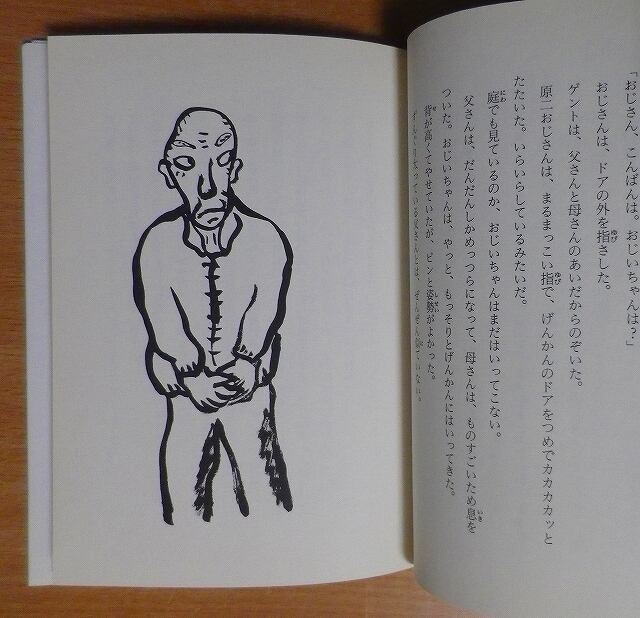 「おじさん、こんばんは。おじいちゃんは？」
おじさんは、ドアの外を指さした。
ゲントは、父さんと母さんのあいだからのぞいた。
原二おじさんは、まるまっこい指で、げんかんのドアをつめでカカカカカッと
たたいた。いらいらしているみたいだ。
庭でも見ているのか、おじいちゃんはまだはいってこない。
父さんは、だんだんしかめっつらになって、母さんは、ものすごいため息を
ついた。おじいちゃんは、やっと、もっそりとげんかんにはいってきた。
背が高くてやせていたが、ピンと姿勢がよかった。
ずんぐり太っている父さんとは、ぜんぜん似ていない。